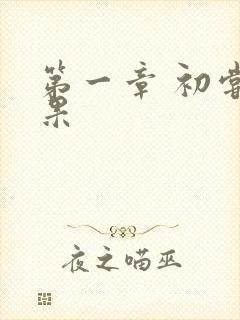 第一章 初尝
果
夜之喵巫